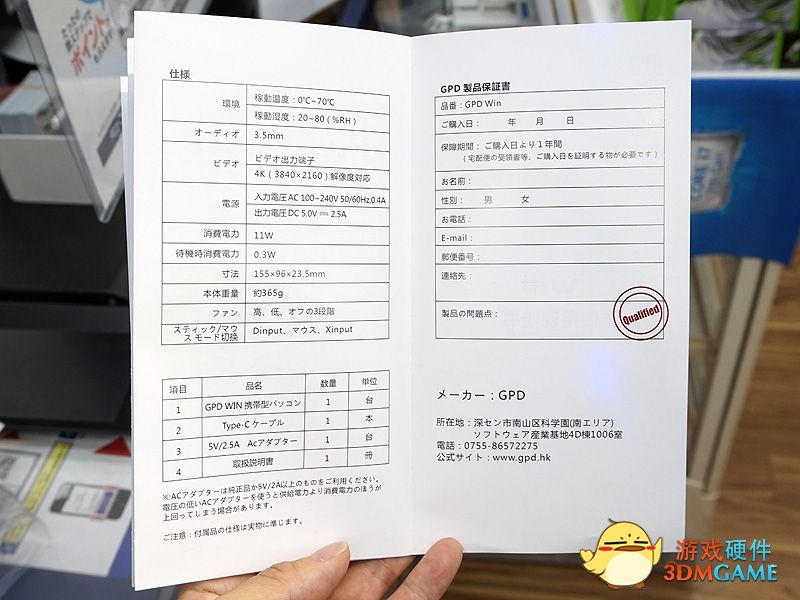 仕様
環境
稼動温度：0℃~70℃
稼動湿度：20~80（%RH）
オーディオ
3.5mm
ビデオ
ビデオ出力端子
4K（3840×2160）解像度対応
電源
入力電圧AC 100~240V 50/60Hz,0.4A
出力電圧DC 5.0V ⎓ 2.5A
消費電力
11W
待機時消費電力
0.3W
寸法
155×96×23.5mm
本体重量
約365g
ファン
高、低、オフの3段階
スティック/マウ
ス モード切換
Dinput、マウス、Xinput
項目 品名 数量 単位
1 GPD WIN 携帯型パソコン 1 台
2 Type-C ケーブル 1 本
3 5V/2.5A Acアダプター 1 台
4 取扱説明書 1 冊
※ACアダプターは純正品か5V/2A以上のものをご利用ください。
電圧の低いACアダプターを使うと供給電力より消費電力のほうが
上回ってしまう場合があります。
ご注意：付属品の仕様は実物に準じます。
GPD 製品保証書
品番：GPD Win
ご購入日： 年 月 日
保障期間：ご購入日より１年間
（宅配便の受領書等、ご購入日を証明する物が必要です）
お名前：
性別： 男 女
お電話：
E-mail：
郵便番号：
連絡先：
製品の問題点：
Qualified
メーカー：GPD
所在地：深セン市南山区科学園(南エリア)
ソフトウェア産業基地4D棟1006室
電話：0755-86572275
公式サイト：www.gpd.hk
ポイント
游戏硬件
3DMGAME